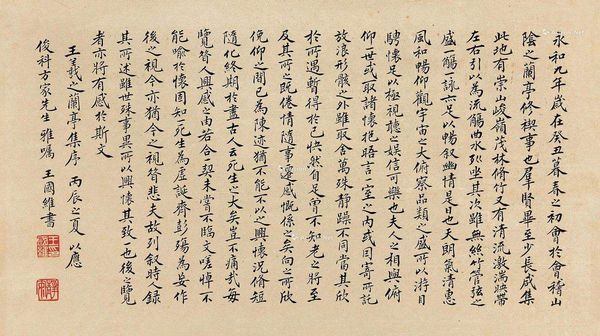 永和九年歲在癸丑暮春之初會於會稽山
陰之蘭亭修禊事也羣賢畢至少長咸集
此地有崇山峻嶺茂林脩竹又有清流激湍映帶
左右引以為流觴曲水列坐其次雖無絲竹管弦之
盛一觴一詠亦足以暢叙幽情是日也天朗氣清惠
風和暢仰觀宇宙之大俯察品類之盛所以游目
騁懷足以極視聽之娛信可樂也夫人之相與俯
仰一世或取諸懷抱晤言一室之內或因寄所託
放浪形骸之外雖取舍萬殊靜躁不同當其欣
於所遇暫得於己快然自足曾不知老之將至
及其所之既倦情隨事遷感慨係之矣向之所欣
俛仰之間已為陳迹猶不能不以之興懷況脩短
隨化終期於盡古人云死生亦大矣豈不痛哉每
覽昔人興感之由若合一契未嘗不臨文嗟悼不
能喻於懷固知一死生為虛誕齊彭殤為妄作
後之視今亦猶今之視昔悲夫故列叙時人錄
其所述雖世殊事異所以興懷其致一也後之覽
者亦將有感於斯文
王羲之蘭亭集序 丙辰之夏 以應
俊科方家先生 雅囑 王國維書